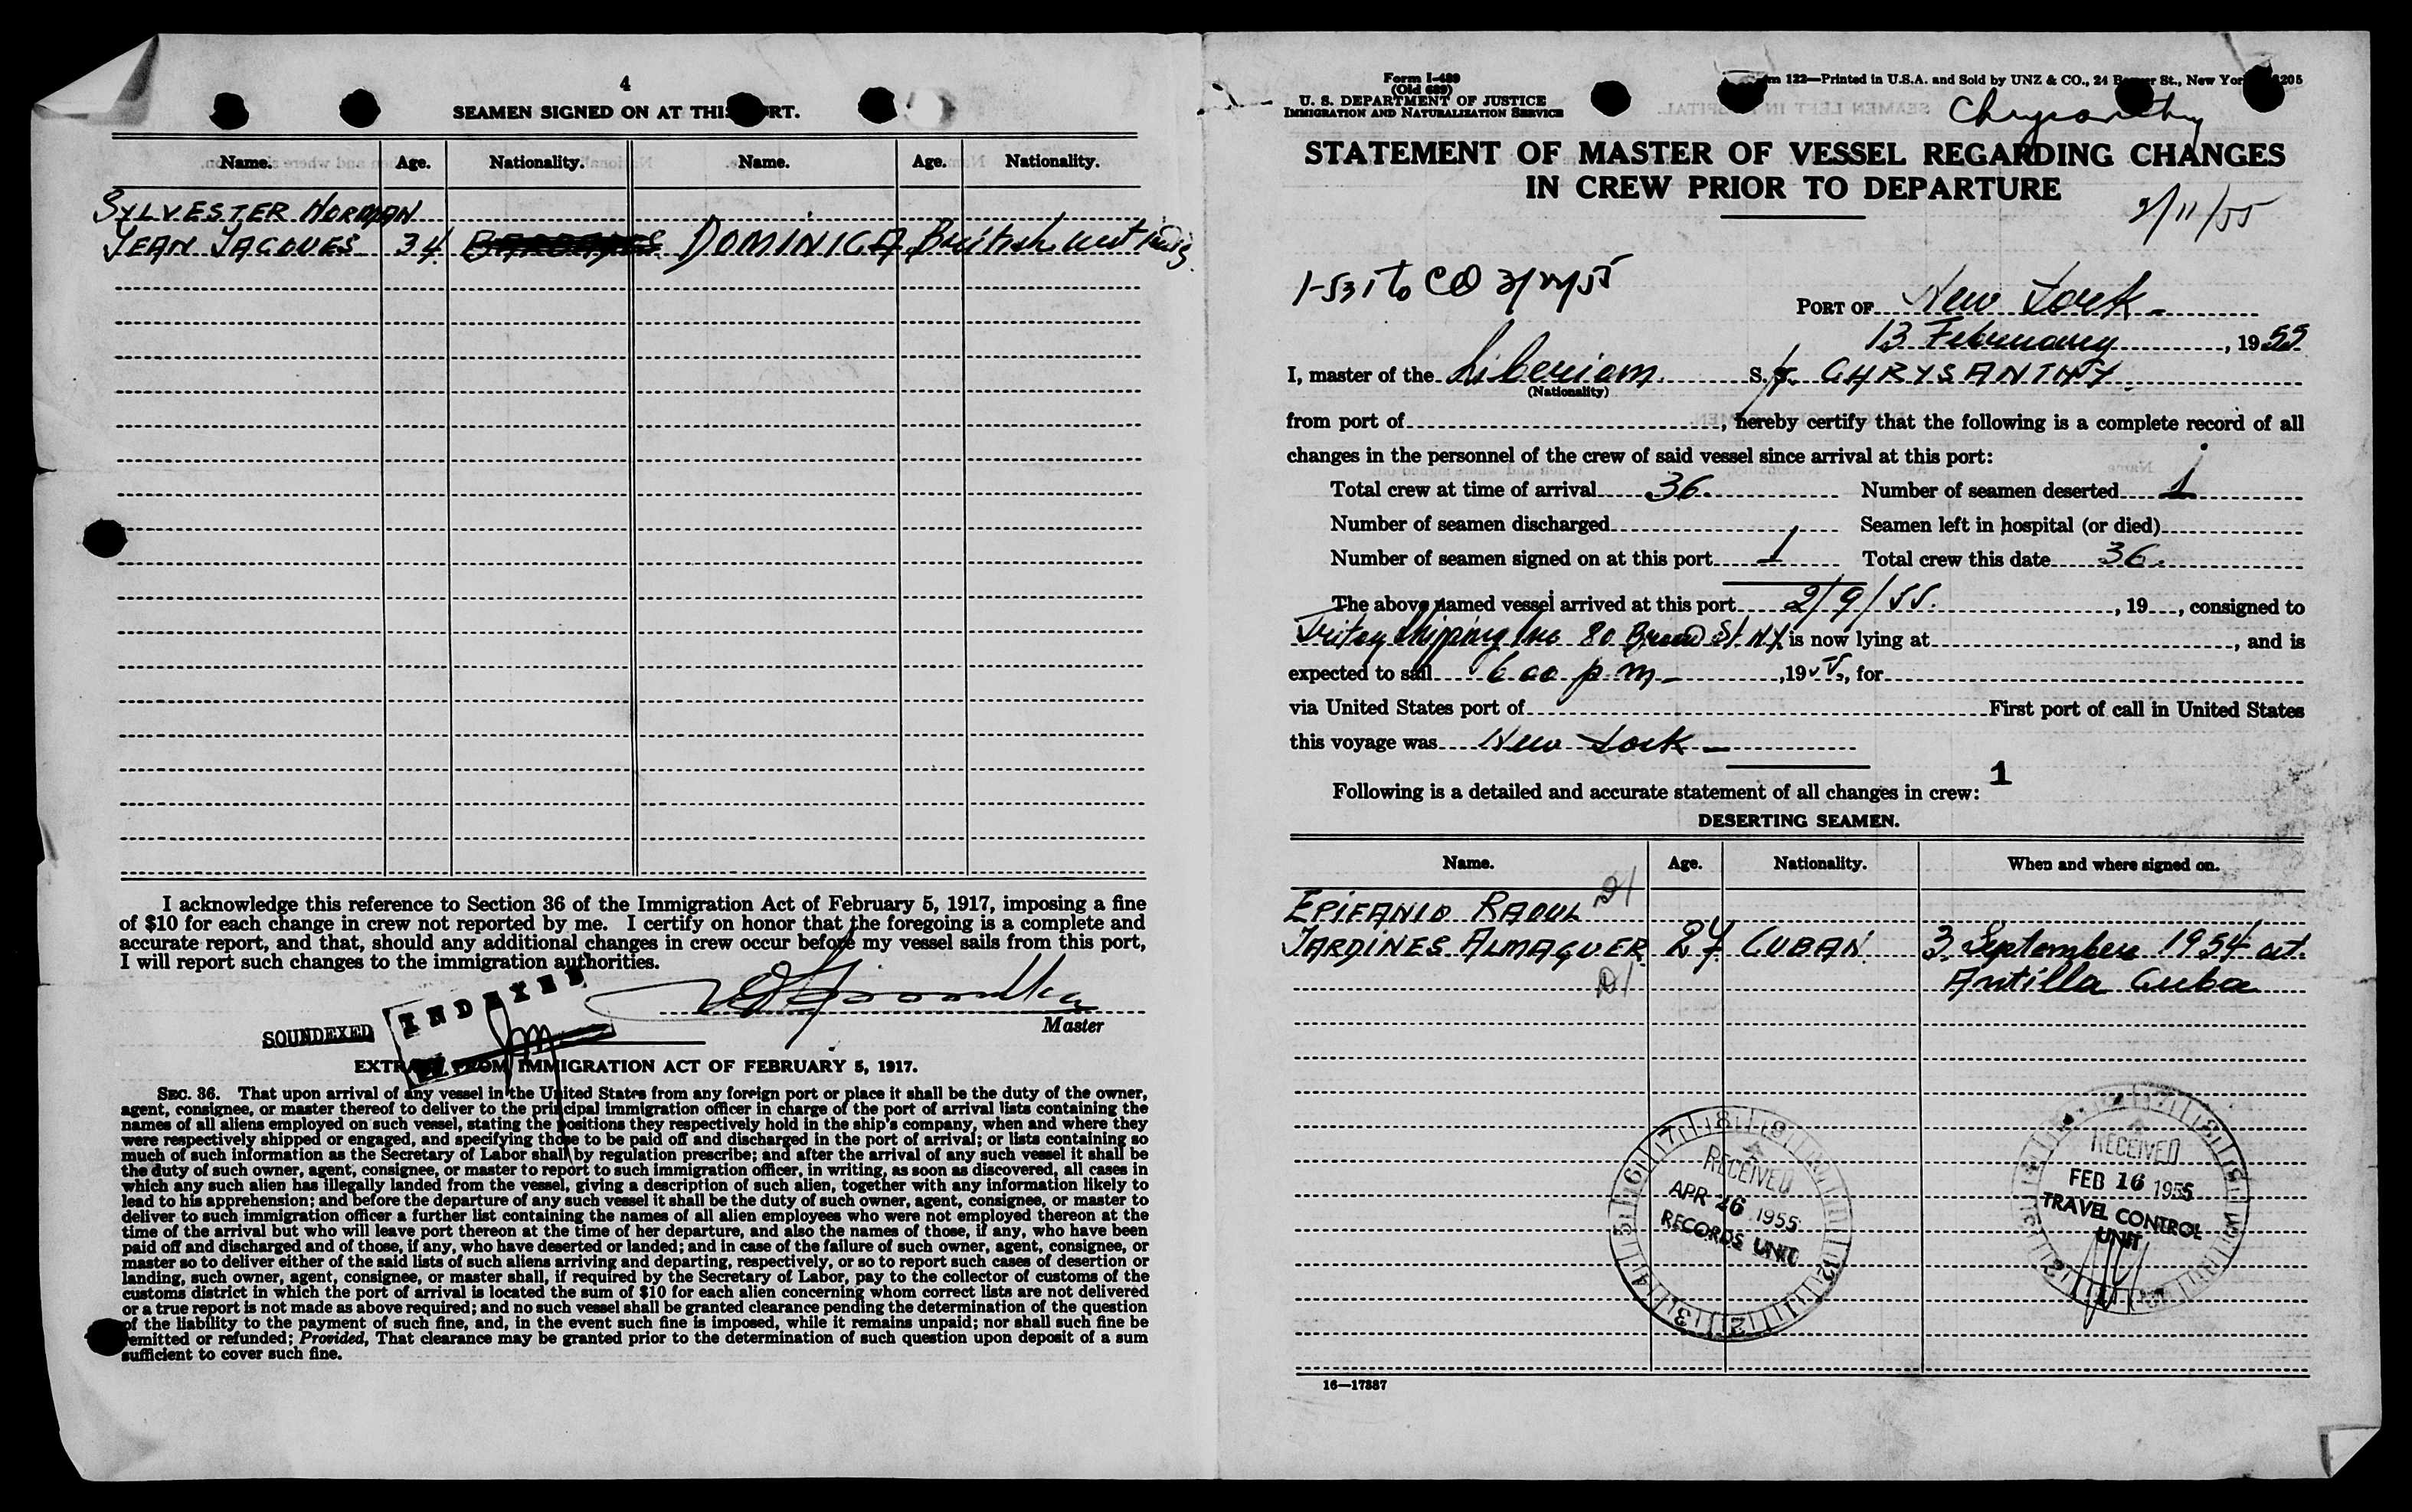 4
SEAMEN SIGNED ON AT THIS PORT.
Name. Age. Nationality. Name. Age. Nationality.
SYLVESTER NORMAN
JEAN JACQUES 34 DOMINICA British west indis
I acknowledge this reference to Section 36 of the Immigration Act of February 5, 1917, imposing a fine
of $10 for each change in crew not reported by me. I certify on honor that the foregoing is a complete and
accurate report, and that, should any additional changes in crew occur before my vessel sails from this port,
I will report such changes to the immigration authorities.
SOUNDEXED
INDEXED
Master
EXTRACT FROM IMMIGRATION ACT OF FEBRUARY 5, 1917.
SEC. 36. That upon arrival of any vessel in the United States from any foreign port or place it shall be the duty of the owner,
agent, consignee, or master thereof to deliver to the principal immigration officer in charge of the port of arrival lists containing the
names of all aliens employed on such vessel, stating the positions they respectively hold in the ship's company, when and where they
were respectively shipped or engaged, and specifying those to be paid off and discharged in the port of arrival; or lists containing so
much of such information as the Secretary of Labor shall by regulation prescribe; and after the arrival of any such vessel it shall be
the duty of such owner, agent, consignee, or master to report to such immigration officer, in writing, as soon as discovered, all cases in
which any such alien has illegally landed from the vessel, giving a description of such alien, together with any information likely to
lead to his apprehension; and before the departure of any such vessel it shall be the duty of such owner, agent, consignee, or master to
deliver to such immigration officer a further list containing the names of all alien employees who were not employed thereon at the
time of the arrival but who will leave port thereon at the time of her departure, and also the names of those, if any, who have been
paid off and discharged and of those, if any, who have deserted or landed; and in case of the failure of such owner, agent, consignee, or
master so to deliver either of the said lists of such aliens arriving and departing, respectively, or so to report such cases of desertion or
landing, such owner, agent, consignee, or master shall, if required by the Secretary of Labor, pay to the collector of customs of the
customs district in which the port of arrival is located the sum of $10 for each alien concerning whom correct lists are not delivered
or a true report is not made as above required; and no such vessel shall be granted clearance pending the determination of the question
of the liability to the payment of such fine, and, in the event such fine is imposed, while it remains unpaid; nor shall such fine be
remitted or refunded; Provided, That clearance may be granted prior to the determination of such question upon deposit of a sum
sufficient to cover such fine.
Form I-489
(Old 689)
U. S. DEPARTMENT OF JUSTICE
IMMIGRATION AND NATURALIZATION SERVICE
122—Printed in U.S.A. and Sold by UNZ & CO., 24 St., New York
Chrysanthy
STATEMENT OF MASTER OF VESSEL REGARDING CHANGES
IN CREW PRIOR TO DEPARTURE
2/11/55
PORT OF New York
13 February, 1955
I, master of the Liberian S. S. CHRYSANTHY
(Nationality)
from port of , hereby certify that the following is a complete record of all
changes in the personnel of the crew of said vessel since arrival at this port:
Total crew at time of arrival 36. Number of seamen deserted 1
Number of seamen discharged Seamen left in hospital (or died)
Number of seamen signed on at this port 1 Total crew this date 36.
The above named vessel arrived at this port 2/9/55. , 19 , consigned to
Triton Shipping Inc 80 Broad St. N.Y. is now lying at , and is
expected to sail 6 00 p m , 195 , for
via United States port of First port of call in United States
this voyage was New York
1
Following is a detailed and accurate statement of all changes in crew:
DESERTING SEAMEN.
Name. Age. Nationality. When and where signed on.
EPIFANIO RAOUL
JARDINES ALMAGUER 27 CUBAN 3 September 1954 at.
Antilla Cuba
RECEIVED
APR 26 1955
RECORDS UNIT
RECEIVED
FEB 16 1955
TRAVEL CONTROL
UNIT
16—17887